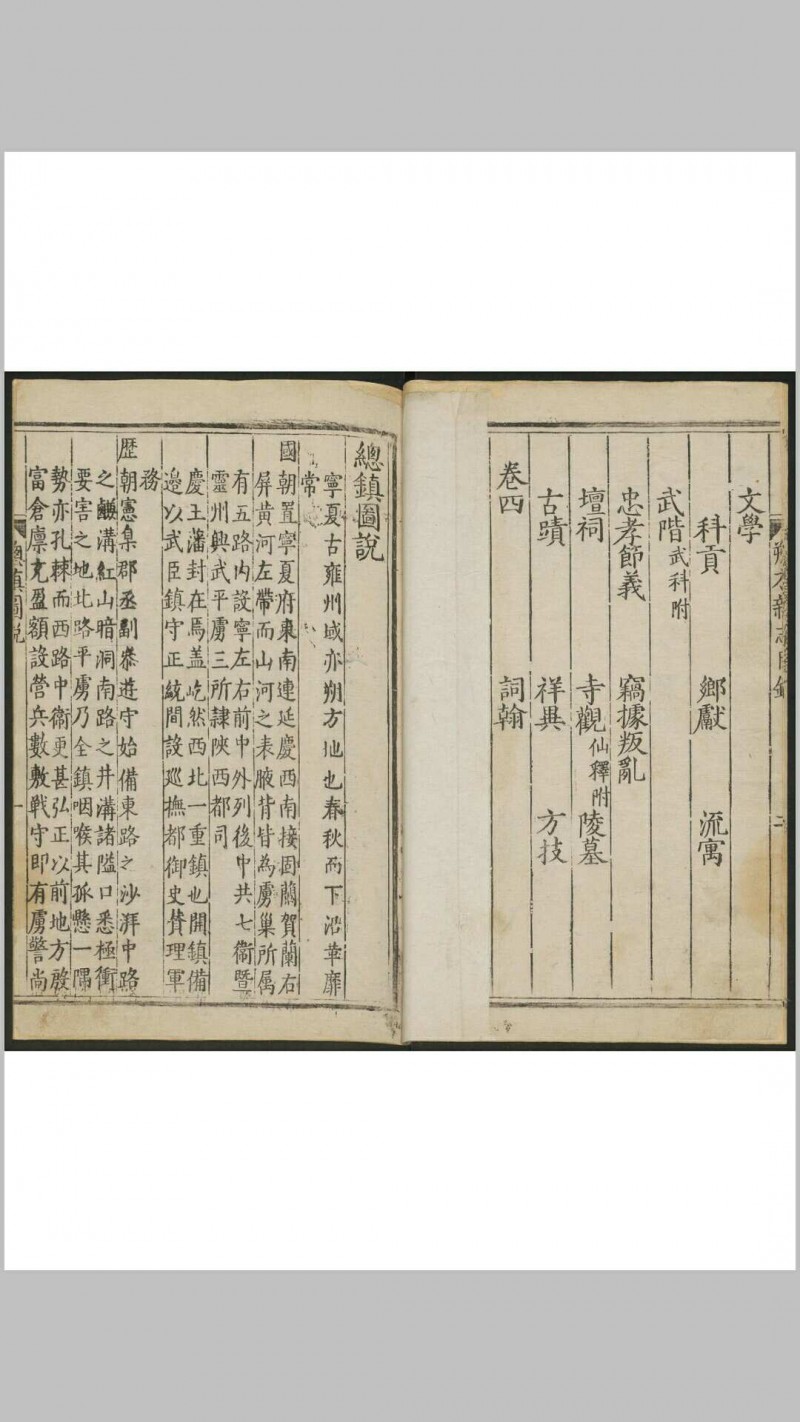 文學
科貢 鄉獻 流寓
武階武科附
忠孝節義 竊據叛亂
壇祠 寺觀仙釋附 陵墓
古蹟 祥異 方技
卷四 詞翰
總鎮圖說
寧夏古雍州域亦朔方地也春秋而下沿革靡
常
國朝置寧夏府東南連延慶西南接固蘭賀蘭右
屏黃河左帶而山河之表腋背皆為虜巢所属
有五路内設寧左右前中外列後中共七衞暨
靈州興武平虜三所隸陝西都司
慶王藩封在焉盖屹然西北一重鎮也開鎮備
邊以武臣鎮守正統間設巡撫都御史賛理軍
務
歷朝憲臬郡丞副叅遊守始備東路之沙湃中路
之鹻溝紅山暗洞南路之井溝諸隘口悉極衝
要害之地北路平虜乃全鎮咽喉其孤懸一隅
勢亦孔棘而西路中衛更甚弘正以前地方殷
富倉廪充盈額設營兵數敷戰守即有虜警尚
總鎮圖說 一